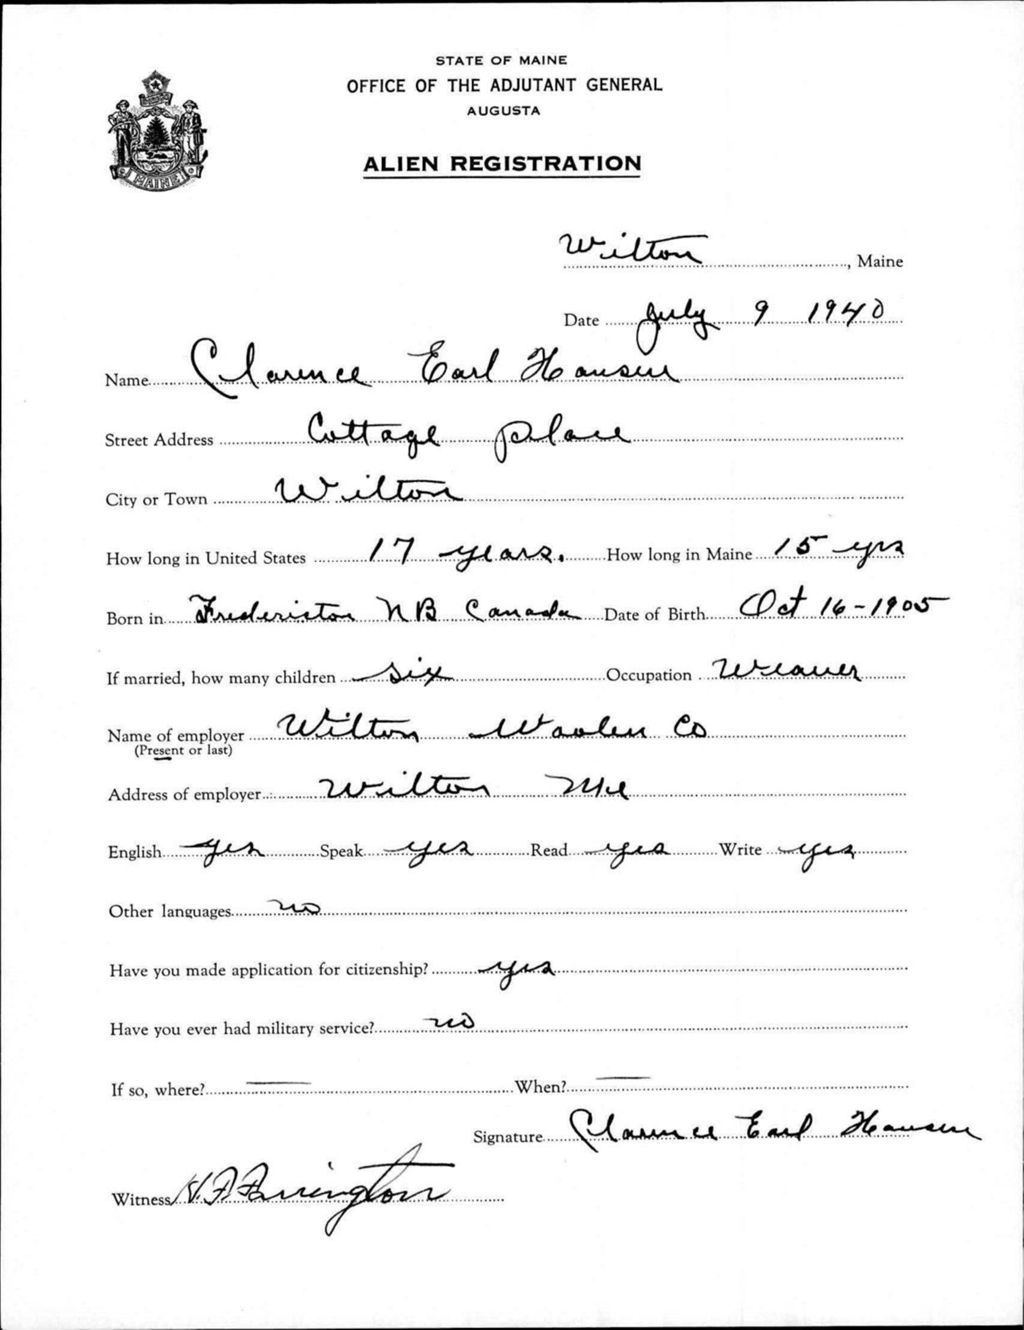 STATE OF MAINE
OFFICE OF THE ADJUTANT GENERAL
AUGUSTA
ALIEN REGISTRATION
MAINE
Wilton, Maine
Date July 9 1940
Name Clarence Earl Hansen
Street Address Cottage place
City or Town Wilton
How long in United States 17 years. How long in Maine 15 yrs
Born in Frederiction N B Canada Date of Birth Oct 16-1905
If married, how many children six Occupation Weaver
Name of employer Wilton Woolen Co
(Present or last)
Address of employer Wilton Me
English yes Speak yes Read yes Write yes
Other languages no
Have you made application for citizenship? yes
Have you ever had military service? no
If so, where? — When? —
Signature Clarence Earl Hansen
Witness